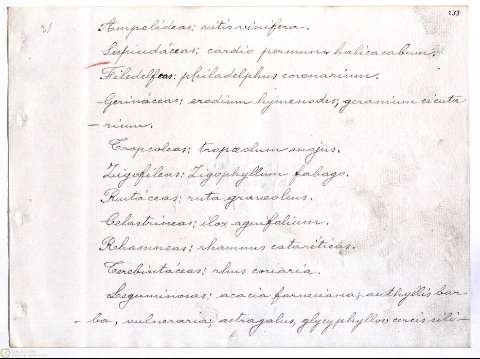 3/
233
Ampelídeas; vitis vinifera.
Sapindáceas; cardio permun halicacabum,
Filedelfeas; philadelphus coronarium.
Gerináceas; erodium hymenodes, geranium cicuta
-rium.
Tropeoleas; tropæolum majus.
Zigofíleas; Zigophyllum fabago.
Rutáceas; ruta graveolens.
Celastríneas; ilex aquifolium.
Rehamneas; rhamnus cataréticas.
Terebintáceas; rhus coriaria.
Leguminosas; acacia farneciana; anthyllis bar-
-ba, vulneraria; astragalus, glycyphylloi, cercis sili-